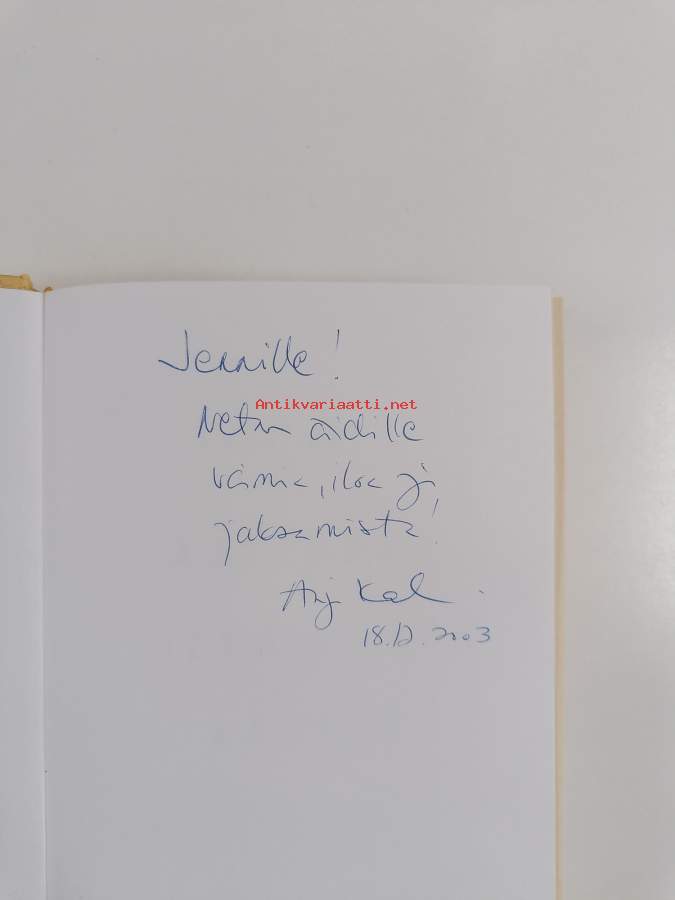 Jennille!
Antikvariaatti.net
Netan äidille
voimia, iloa ja
jaksamista!
18.12.2003